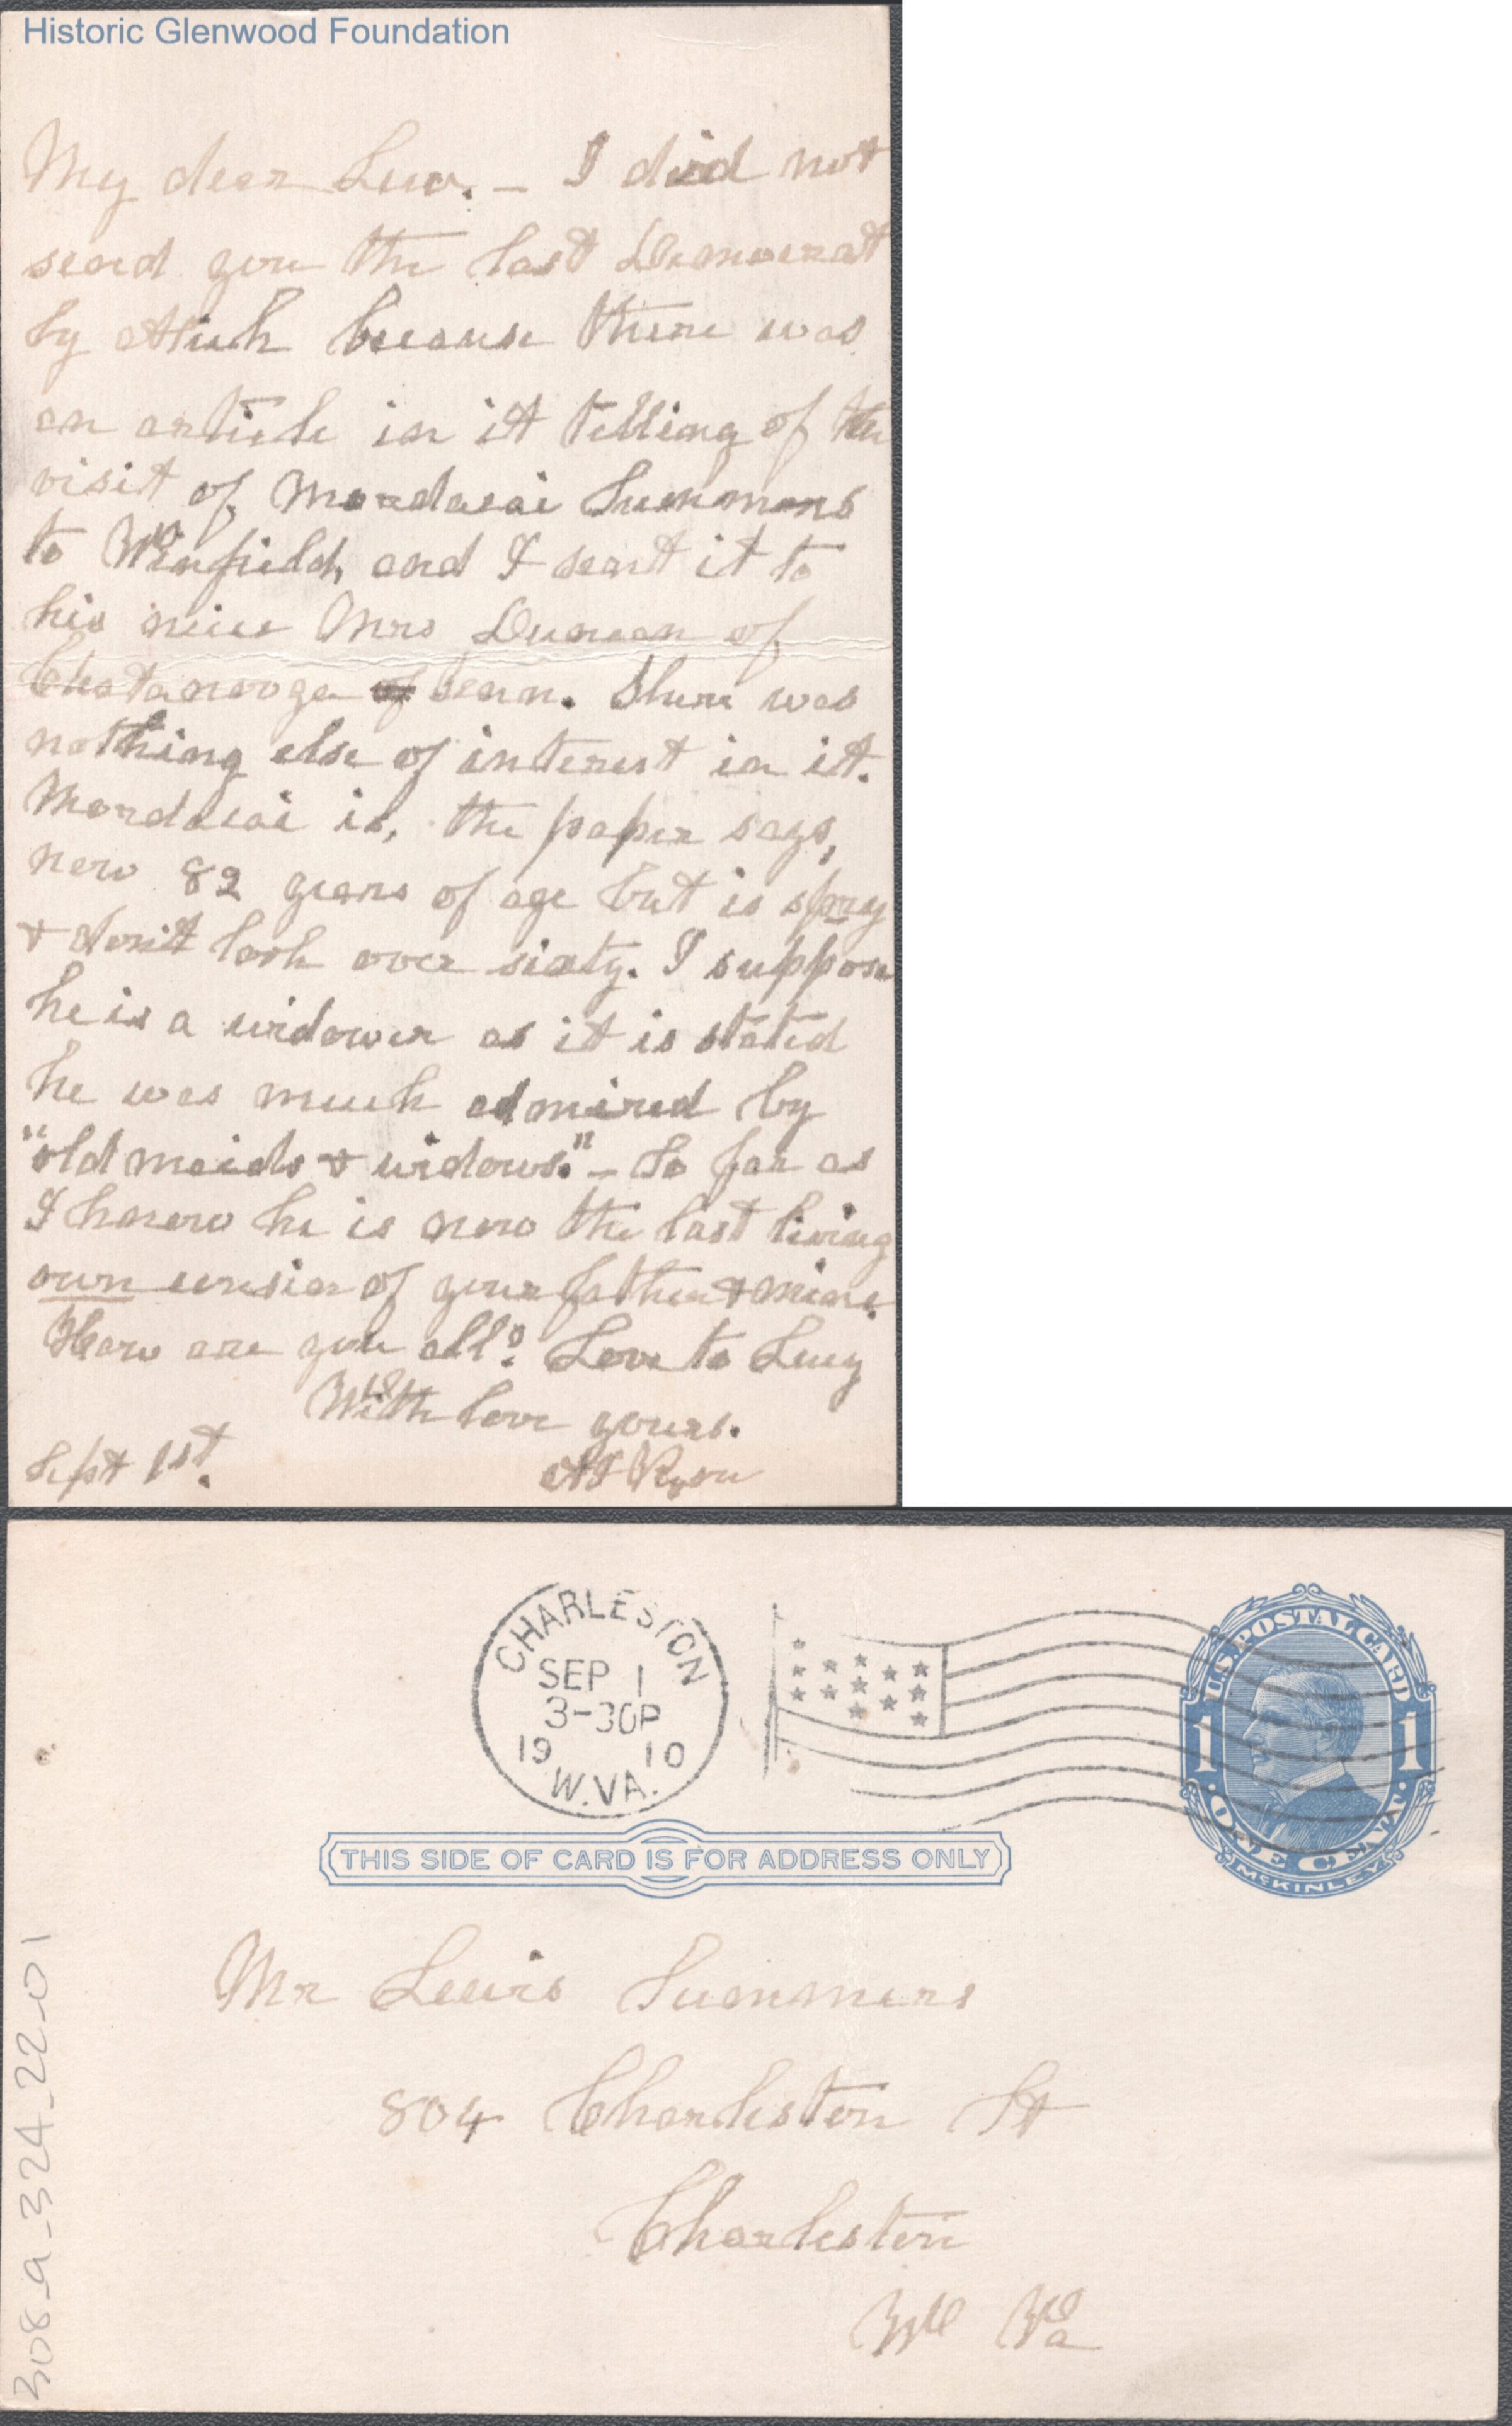 Historic Glenwood Foundation
My dear Lew. – I did not
send you the last Democrat
by Atich because there was
an article in it telling of the
visit of Mordacai Summers
to Winfield, and I sent it to
his niece Mrs Duncan of
Chatanooga Tenn. There was
nothing else of interest in it.
Mordacai is, the paper says,
now 82 years of age but is spry
& don't look over sixty. I suppose
he is a widower as it is stated
he was much admired by
"old maids & widows." – So far as
I know he is now the last living
own cousin of your father & mine.
How are you all? Love to Lucy
With love yours.
Sept 1st.
CHARLESTON
SEP 1
3-30P
19 10
W.VA.
U.S. POSTAL CARD
1 1
ONE CENT.
McKINLEY
THIS SIDE OF CARD IS FOR ADDRESS ONLY
Mr Lewis Summers
804 Charleston St
Charleston
W Va
308_a_324_22_01